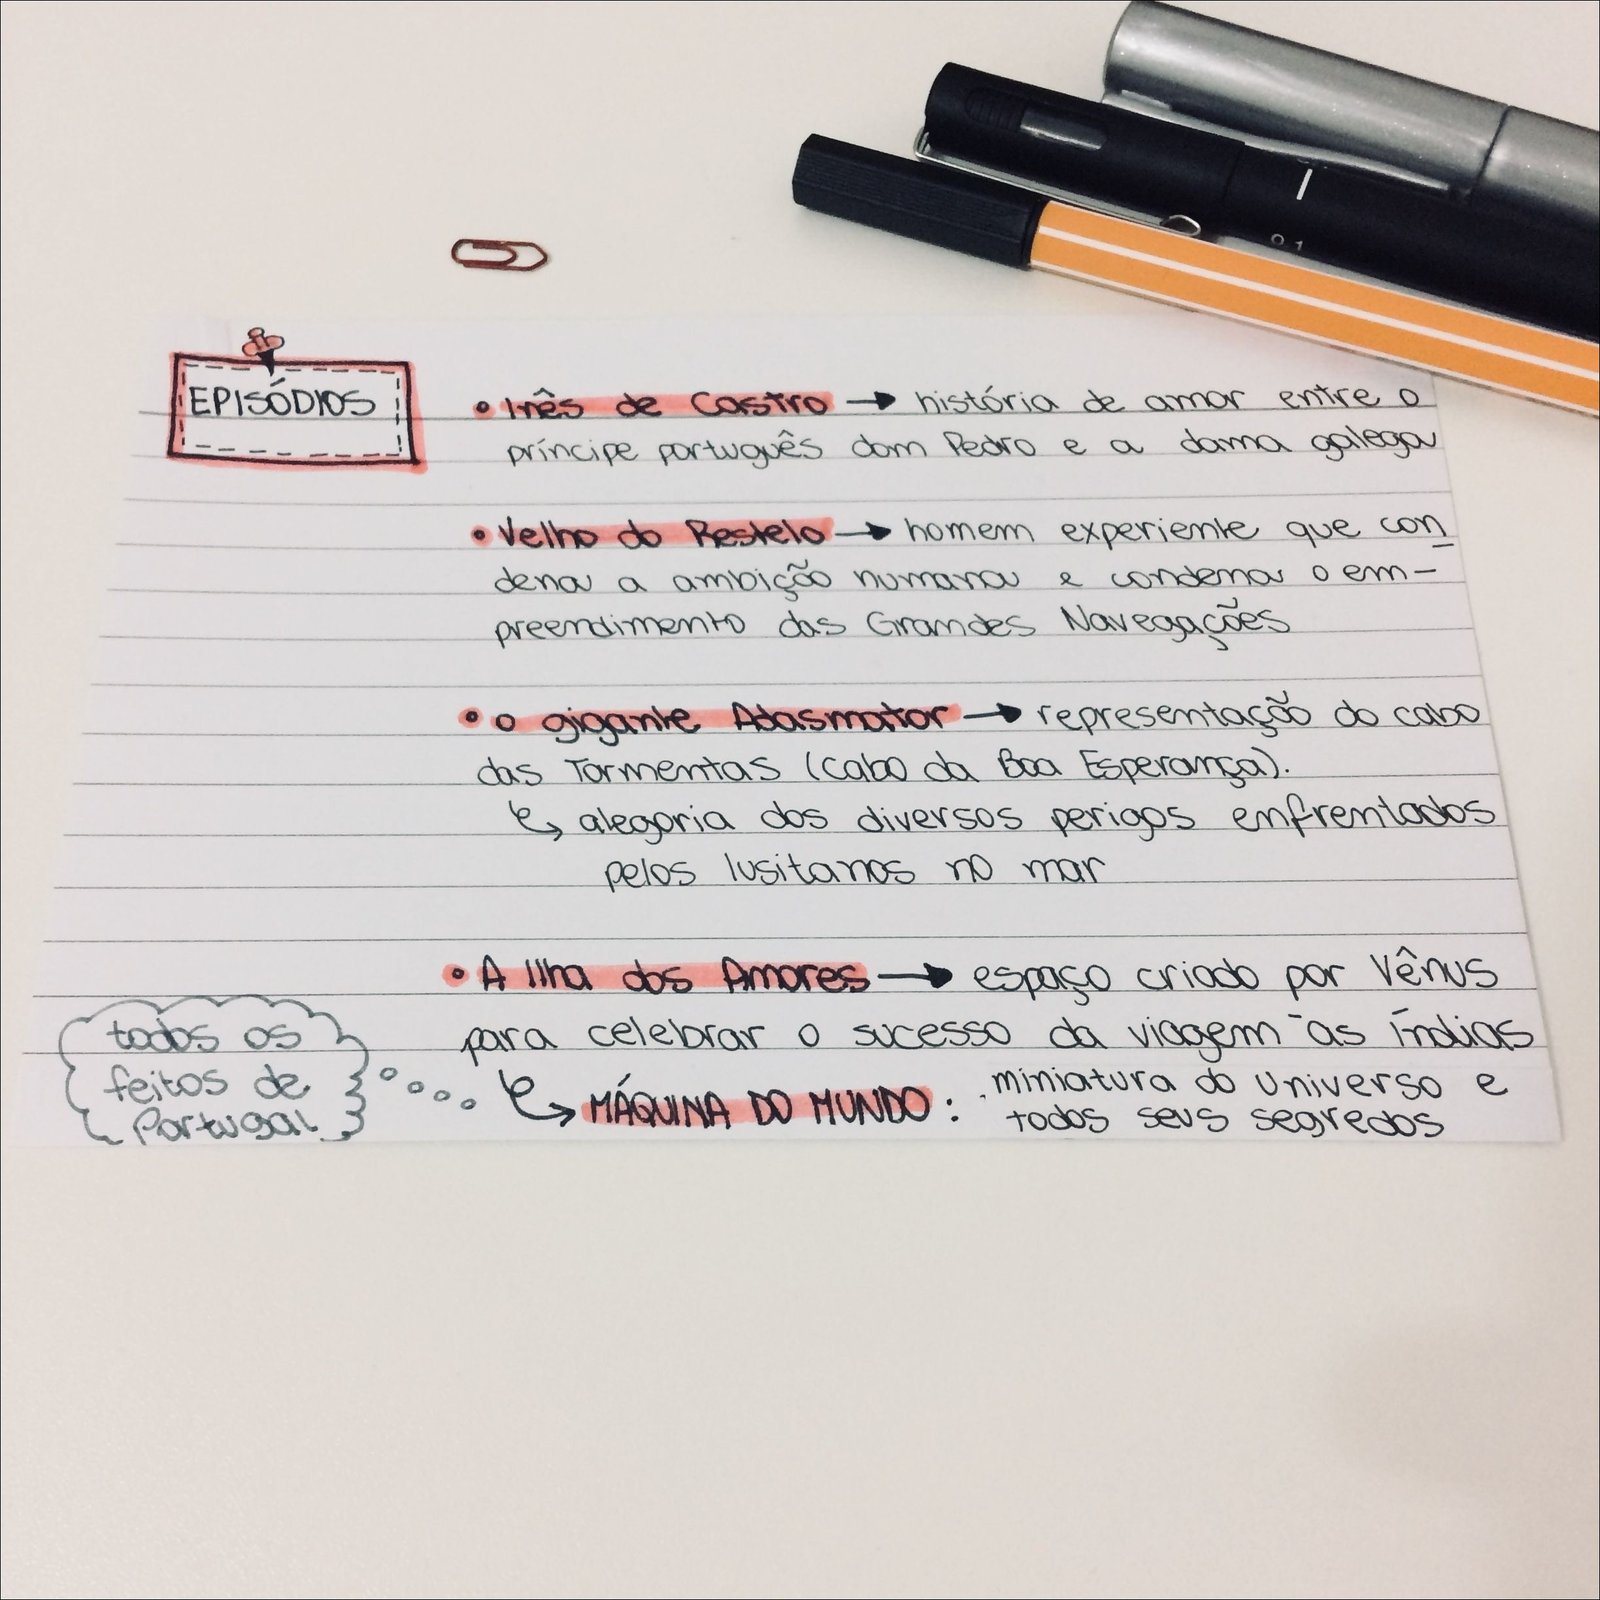 EPISÓDIOS
• Inês de Castro → história de amor entre o
príncipe português dom Pedro e a dama galega
• Velho do Restelo → homem experiente que con
dena a ambição humana e condena o em-
preendimento das Grandes Navegações
• o gigante Adasmator → representação do cabo
das Tormentas (Cabo da Boa Esperança).
↳ alegoria dos diversos perigos enfrentados
pelos lusitanos no mar
• A Ilha dos Amores → espaço criado por Vênus
para celebrar o sucesso da viagem às Índias
↳ MÁQUINA DO MUNDO: miniatura do universo e
todos seus segredos
todos os
feitos de
Portugal
0.1